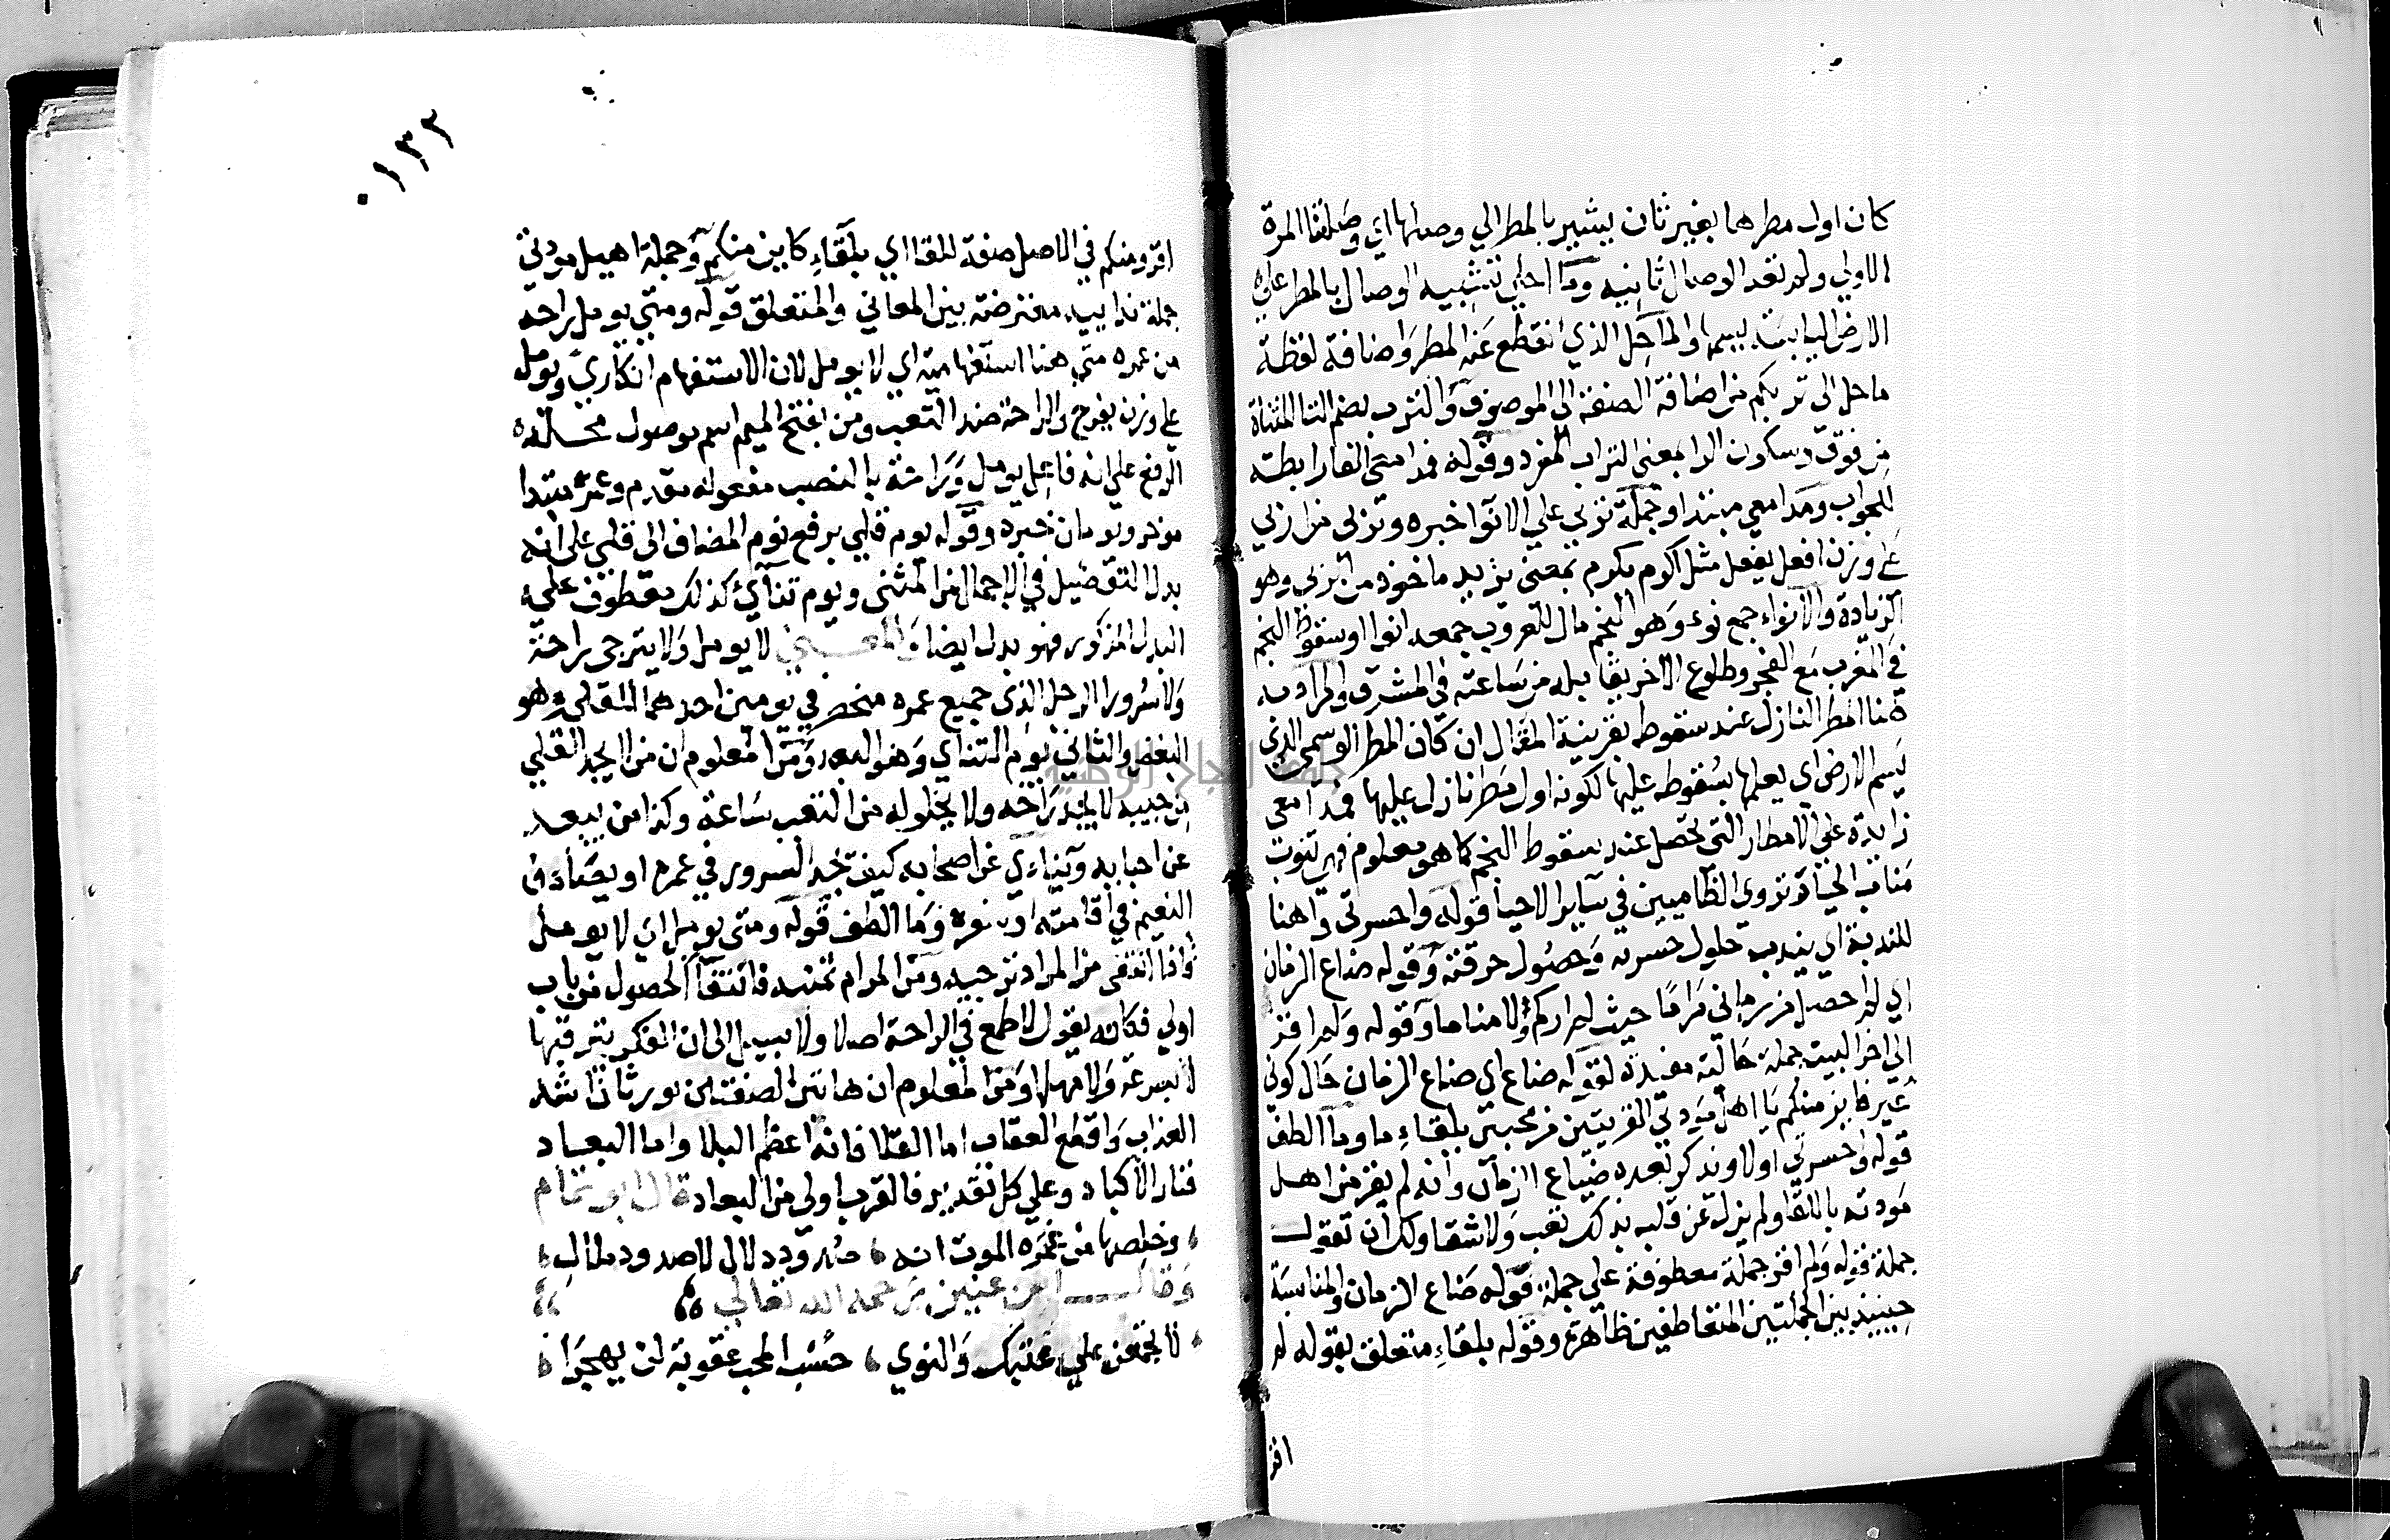 كان اول مطرها بغير ثان يشير بالمطر الي وصلها اي وصلتنا المرة
الاولي ولم تعد الوصال ثانيه وما احلي تشبيه الوصال بالمطر علي
الارض اليابسة ليبسها والماحل الذي انقطع عنه المطر واضافة لفظة
ماحل الى تربكم من اضافة الصفة الى الموصوف والترب بضم التا المثناة
من فوق وسكون الرا بمعنى التراب المفرد وقوله فمدامعى الفا رابطة
للجواب ومدامعي مبتدا وجملة تربي علي الانوا خبره وتربى من اربي
علي وزن افعل يفعل مثل اكرم يكرم بمعنى يزيد ماخوذ من الربى وهو
الزيادة والانواء جمع نوء وهو النجم مال للغروب جمعه انوا او سقوط النجم
في المغرب مع الفجر وطلوع الاخر يقابله من ساعته في المشرق والمراد به
هنا المطر النازل عند سقوطه بقرينة المقال ان كان المطر الوسمى الذى
يسم الارض اى يعلمها بسقوطه عليها لكونه اول مطر نازل عليها فمدامعى
زايدة على الامطار التى تحصل عند سقوط النجم كما هو معلوم فهى تنوب
مناب الحيا وتروى الظاميين في ساير الاحيا قوله واحسرتى وا هنا
للندبة اي يندب حلول حسرته وحصول حرقته وقوله ضاع الزمان
اي لم احصل من زماني مراما حيث لم اركم ولا مناما وقوله ولم افز
الي اخر البيت جملة حالية مفيدة لقوله ضاع اي ضاع الزمان حال كوني
غير فايز منكم يا اهل مودتي القريبين من محبتي بلقاء ما وما الطف
قوله واحسرتي اولا ويذكر بعده ضياع الزمان وانه لم يفز من اهل
مودته باللقا ولم يزل عن قلبه بذلك تعب ولا شقا ولك ان تقول
جملة قوله ولم افز جملة معطوفة علي جملة قوله ضاع الزمان والمناسبة
حينيذ بين الجملتين المتعاطفين ظاهرة وقوله بلقاء متعلق بقوله لم
افز
١٣٢
افز ومنكم في الاصل صفة للقا اي بلقاء كاين منكم وجملة اهيل مودتي
جملة ندابيه معترضة بين المعاني والمتعلق قوله ومتي يومل راحه
من عمره متي هنا استفهامية اي لا يومل لان الاستفهام انكاري ويومل
علي وزن يفرح والراحة ضد التعب ومن بفتح الميم اسم موصول محله
الرفع علي انه فاعل يومل وراحة بالنصب مفعوله مقدم وعمره مبتدا
موخر ويومان خبره وقوله يوم قلي برفع يوم المضاف الى قلي على انه
بدل التفضيل في الاجمال من المثنى ويوم تنآي كذلك معطوف علي
البدل المذكور فهو بدل ايضا والمعني لا يومل ولا يترجى راحة
ولا سرورا الرجل الذى جميع عمره منحصر في يومين احدهما القلي وهو
البغض والثاني يوم التناي وهو البعد ومن المعلوم ان من لا يجد القلي
من حبيبه لا يجد راحه ولا يخلو له من التعب ساعة وكذا من يبعد
عن احبابه وتناءي عن اصحابه كيف يجد السرور في عمره او يصادف
النعيم في اقامته او سفره وما الطف قوله ومتى يومل اي لا يومل
واذا انتفى من المراد ترجيه ومن المرام تمنيه فانتفآ الحصول من باب
اولي فكانه يقول لا طمع في الراحة اصلا ولا سبيل الى ان الفكر يترقبها
لا بسرعة ولا مهلا ومن المعلوم ان هاتين الصفتين يورثان اشد
العذاب واقطع العقاب اما القلا فانه اعظم البلا واما البعاد
فنار الاكباد وعلي كل تقدير فالقرب اولي من البعاد قال ابو تمام
وخلصها من غمره الموت انه صدود دلال لا صدود ملال
وقال ابن عنين رحمه الله تعالي
لا تجمعن علي عتبك والنوي حسب المحب عقوبة ان يهجرا